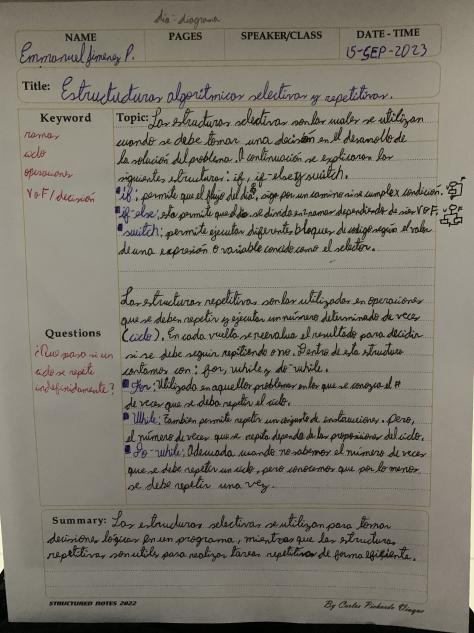 dia-diagrama
NAME PAGES SPEAKER/CLASS DATE - TIME
Emmanuel Jimenez P. 15-SEP-2023
Title: Estructuduras algorítmicas selectivas y repetitivas.
Keyword
ramas
ciclo
operaciones
V o F / decisión
Topic: Las estructuras selectivas son las cuales se utilizan
cuando se debe tomar una decisión en el desarrollo de
la solución del problema. A continuación se explicaran las
siguientes estructuras: if, if-else y switch.
if: permite que el flujo del dia. siga por un camino si se cumple x condición.
if-else: esta permite que el dia. se divida en ramas dependiendo de si es V o F.
V F
switch: permite ejecutar diferentes bloques de codigo según el valor
de una expresión o variable conocida como el selector.
Las estructuras repetitivas son las utilizadas en operaciones
que se deben repetir y ejecutar un número determinado de veces
(ciclo). En cada vuelta se reevalua el resultado para decidir
si se debe seguir repitiendo o no. Dentro de esta estructura
contamos con: for, while y do-while.
For: Utilizada en aquellos problemas en los que se conozca el #
de veces que se deba repetir el ciclo.
While: Tambien permite repetir un conjunto de instrucciones. Pero,
el número de veces que se repita depende de las proposiciones del ciclo.
Do-while: Adecuada cuando no sabemos el número de veces
que se debe repetir un ciclo, pero conocemos que por lo menos
se debe repetir una vez.
Questions
¿Que pasa si un
ciclo se repite
indefinidamente?
Summary: Las estructuras selectivas se utilizan para tomar
decisiones lógicas en un programa, mientras que las estructuras
repetitivas son utiles para realizar tareas repetitivas de forma eficiente.
STRUCTURED NOTES 2022 By Carlos Pichardo Viuque